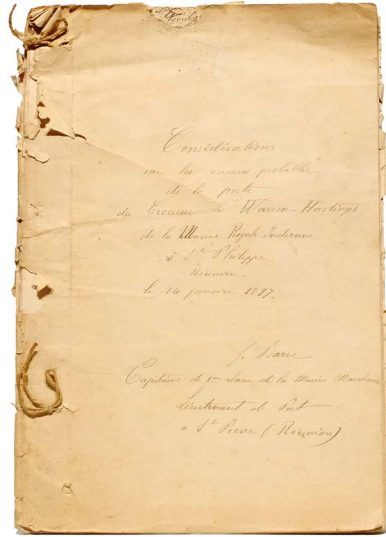 Considérations
sur les causes probables
de la perte
du Croiseur le Warren-Hastings
de la Marine Royale Indienne
à St Philippe
Réunion.
le 14 janvier 1897.
Capitaine de 1ère classe de la Marine Marchande
Lieutenant de Port
à St Pierre (Réunion)